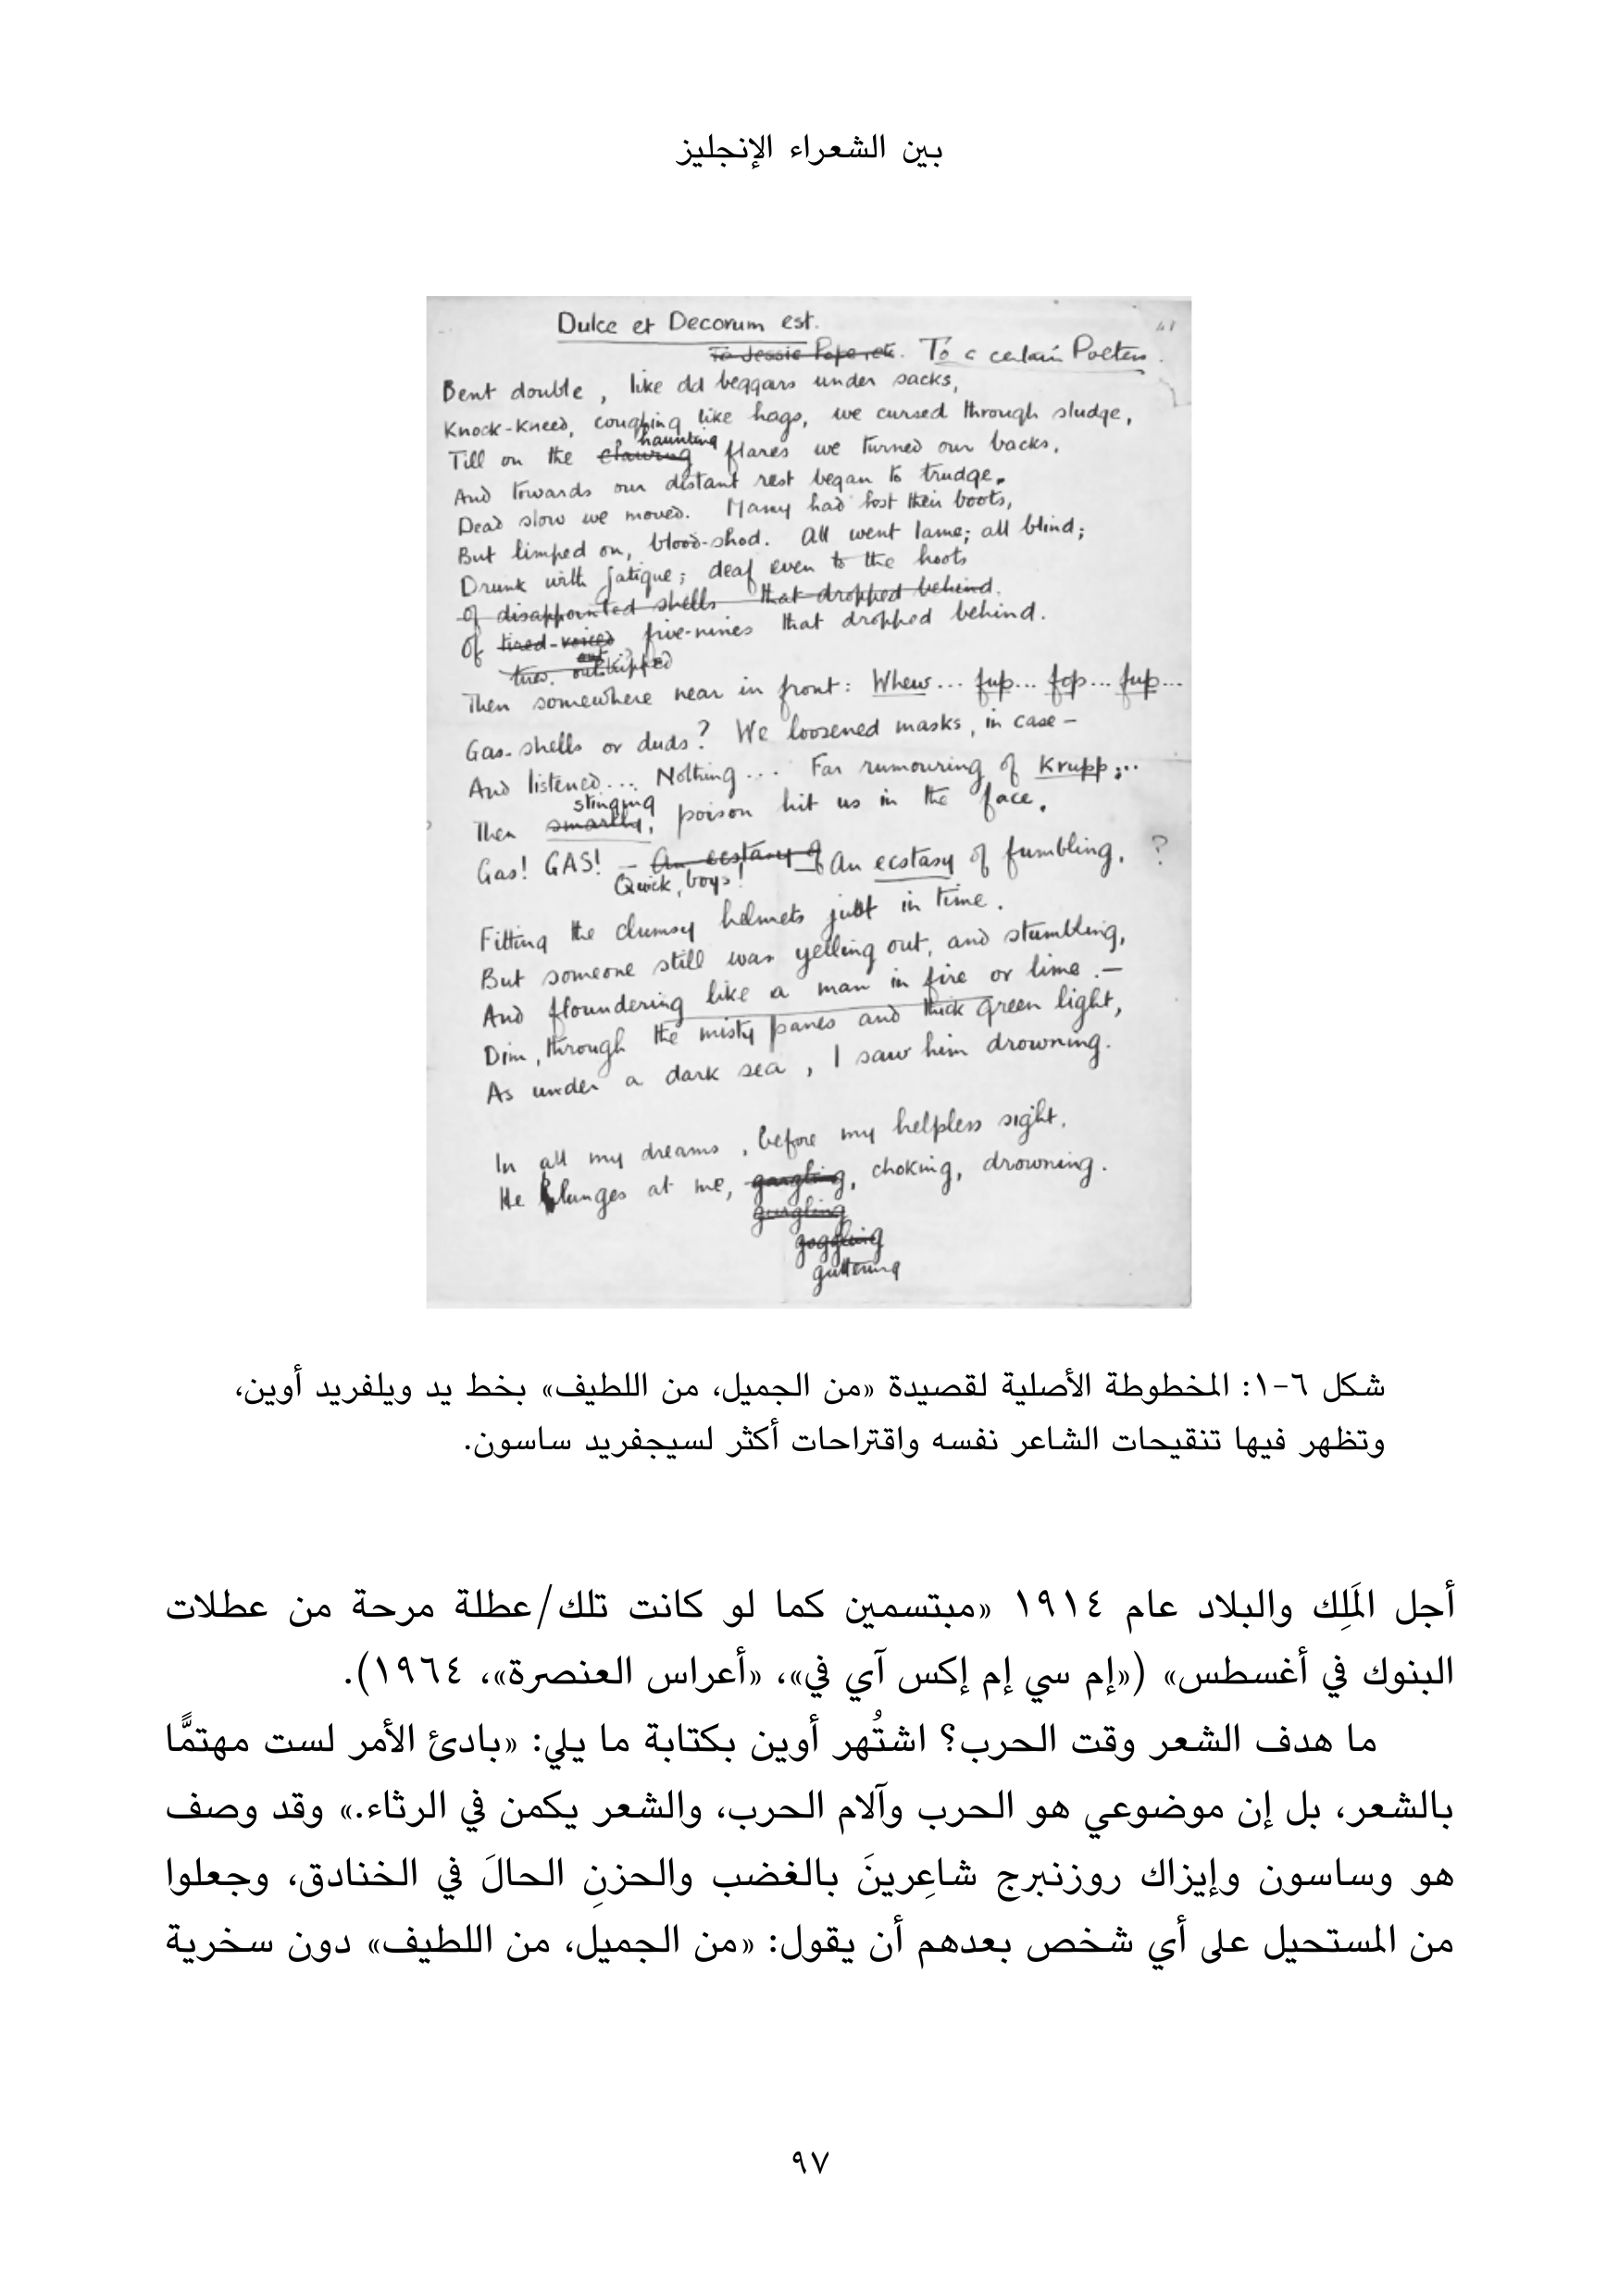 بين الشعراء الإنجليز
Dulce et Decorum est.
To Jessie Pope etc. To a certain Poetess.
Bent double, like old beggars under sacks,
Knock-kneed, coughing like hags, we cursed through sludge,
haunting
Till on the clawing flares we turned our backs,
And towards our distant rest began to trudge.
Dead slow we moved. Many had lost their boots,
But limped on, blood-shod. All went lame; all blind;
Drunk with fatigue; deaf even to the hoots
of disappointed shells that dropped behind.
Of tired-voiced five-nines that dropped behind.
outstripped
Then somewhere near in front: Whew... fup... fop... fup...
Gas-shells or duds? We loosened masks, in case –
And listened.... Nothing... Far rumouring of Krupp;..
stinging
Then smartly, poison hit us in the face.
Gas! GAS! – An ecstasy of An ecstasy of fumbling, ?
Quick, boys!
Fitting the clumsy helmets just in time.
But someone still was yelling out, and stumbling,
And floundering like a man in fire or lime. –
Dim, through the misty panes and thick green light,
As under a dark sea, I saw him drowning.
In all my dreams, before my helpless sight,
He plunges at me, gargling, choking, drowning.
gurgling
goggling
guttering
شكل ٦-١: المخطوطة الأصلية لقصيدة «من الجميل، من اللطيف» بخط يد ويلفريد أوين،
وتظهر فيها تنقيحات الشاعر نفسه واقتراحات أكثر لسيجفريد ساسون.
أجل المَلِك والبلاد عام ١٩١٤ «مبتسمين كما لو كانت تلك/عطلة مرحة من عطلات
البنوك في أغسطس» («إم سي إم إكس آي في»، «أعراس العنصرة»، ١٩٦٤).
ما هدف الشعر وقت الحرب؟ اشتُهر أوين بكتابة ما يلي: «بادئ الأمر لست مهتمًّا
بالشعر، بل إن موضوعي هو الحرب وآلام الحرب، والشعر يكمن في الرثاء.» وقد وصف
هو وساسون وإيزاك روزنبرج شاعِرينَ بالغضب والحزنِ الحالَ في الخنادق، وجعلوا
من المستحيل على أي شخص بعدهم أن يقول: «من الجميل، من اللطيف» دون سخرية
٩٧